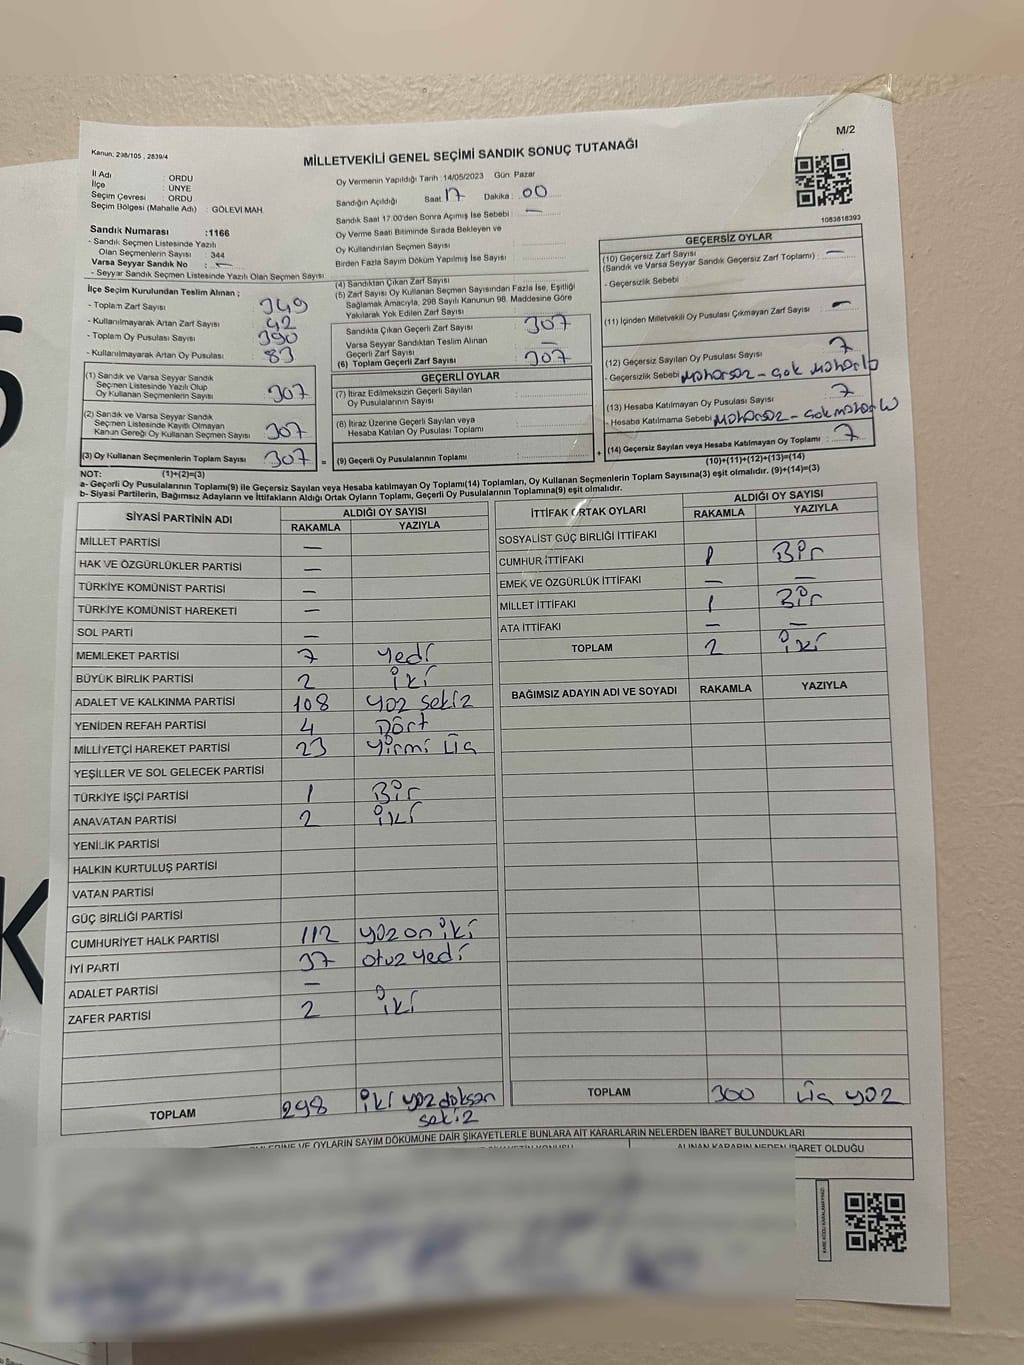 M/2
Kanun, 298/105 , 2839/4
MİLLETVEKİLİ GENEL SEÇİMİ SANDIK SONUÇ TUTANAĞI
İl Adı : ORDU
İlçe : ÜNYE
Seçim Çevresi : ORDU
Seçim Bölgesi (Mahalle Adı) : GÖLEVİ MAH.
Sandık Numarası :1166
- Sandık Seçmen Listesinde Yazılı
Olan Seçmenlerin Sayısı : 344
Varsa Seyyar Sandık No : -
- Seyyar Sandık Seçmen Listesinde Yazılı Olan Seçmen Sayısı
Oy Vermenin Yapıldığı Tarih :14/05/2023 Gün: Pazar
Sandığın Açıldığı Saat: 17 Dakika : 00
Sandık Saat 17.00'den Sonra Açılmış İse Sebebi : -
Oy Verme Saati Bitiminde Sırada Bekleyen ve
Oy Kullandırılan Seçmen Sayısı :
Birden Fazla Sayım Döküm Yapılmış İse Sayısı :
1083818393
İlçe Seçim Kurulundan Teslim Alınan ;
- Toplam Zarf Sayısı : 349
- Kullanılmayarak Artan Zarf Sayısı : 42
- Toplam Oy Pusulası Sayısı : 390
- Kullanılmayarak Artan Oy Pusulası : 83
(1) Sandık ve Varsa Seyyar Sandık
Seçmen Listesinde Yazılı Olup
Oy Kullanan Seçmenlerin Sayısı : 307
(2) Sandık ve Varsa Seyyar Sandık
Seçmen Listesinde Kayıtlı Olmayan
Kanun Gereği Oy Kullanan Seçmen Sayısı : 307
(3) Oy Kullanan Seçmenlerin Toplam Sayısı : 307
(1)+(2)=(3)
(4) Sandıktan Çıkan Zarf Sayısı
(5) Zarf Sayısı Oy Kullanan Seçmen Sayısından Fazla İse, Eşitliği
Sağlamak Amacıyla, 298 Sayılı Kanunun 98. Maddesine Göre
Yakılarak Yok Edilen Zarf Sayısı :
Sandıkta Çıkan Geçerli Zarf Sayısı : 307
Varsa Seyyar Sandıktan Teslim Alınan
Geçerli Zarf Sayısı : -
(6) Toplam Geçerli Zarf Sayısı : 307
GEÇERLİ OYLAR
(7) İtiraz Edilmeksizin Geçerli Sayılan
Oy Pusulasının Sayısı :
(8) İtiraz Üzerine Geçerli Sayılan veya
Hesaba Katılan Oy Pusulası Toplamı :
= (9) Geçerli Oy Pusulalarının Toplamı :
GEÇERSİZ OYLAR
(10) Geçersiz Zarf Sayısı
(Sandık ve Varsa Seyyar Sandık Geçersiz Zarf Toplamı) : -
- Geçersizlik Sebebi
(11) İçinden Milletvekili Oy Pusulası Çıkmayan Zarf Sayısı : -
(12) Geçersiz Sayılan Oy Pusulası Sayısı : 7
- Geçersizlik Sebebi Mühürsüz - Çok Mühürlü
(13) Hesaba Katılmayan Oy Pusulası Sayısı : 7
- Hesaba Katılmama Sebebi Mühürsüz - Çok mühürlü
+ (14) Geçersiz Sayılan veya Hesaba Katılmayan Oy Toplamı : 7
(10)+(11)+(12)+(13)=(14)
NOT:
a- Geçerli Oy Pusulalarının Toplamı(9) ile Geçersiz Sayılan veya Hesaba katılmayan Oy Toplamı(14) Toplamları, Oy Kullanan Seçmenlerin Toplam Sayısına(3) eşit olmalıdır. (9)+(14)=(3)
b- Siyasi Partilerin, Bağımsız Adayların ve İttifakların Aldığı Ortak Oyların Toplamı, Geçerli Oy Pusulalarının Toplamına(9) eşit olmalıdır.
SİYASİ PARTİNİN ADI ALDIĞI OY SAYISI
RAKAMLA YAZIYLA
MİLLET PARTİSİ -
HAK VE ÖZGÜRLÜKLER PARTİSİ -
TÜRKİYE KOMÜNİST PARTİSİ -
TÜRKİYE KOMÜNİST HAREKETİ -
SOL PARTİ -
MEMLEKET PARTİSİ 7 yedi
BÜYÜK BİRLİK PARTİSİ 2 iki
ADALET VE KALKINMA PARTİSİ 108 yüz sekiz
YENİDEN REFAH PARTİSİ 4 Dört
MİLLİYETÇİ HAREKET PARTİSİ 23 yirmi üç
YEŞİLLER VE SOL GELECEK PARTİSİ
TÜRKİYE İŞÇİ PARTİSİ 1 Bir
ANAVATAN PARTİSİ 2 iki
YENİLİK PARTİSİ
HALKIN KURTULUŞ PARTİSİ
VATAN PARTİSİ
GÜÇ BİRLİĞİ PARTİSİ
CUMHURİYET HALK PARTİSİ 112 yüz on iki
İYİ PARTİ 37 otuz yedi
ADALET PARTİSİ -
ZAFER PARTİSİ 2 iki
TOPLAM 298 iki yüz doksan
sekiz
İTTİFAK ORTAK OYLARI ALDIĞI OY SAYISI
RAKAMLA YAZIYLA
SOSYALİST GÜÇ BİRLİĞİ İTTİFAKI
CUMHUR İTTİFAKI 1 Bir
EMEK VE ÖZGÜRLÜK İTTİFAKI - -
MİLLET İTTİFAKI 1 Bir
ATA İTTİFAKI - -
TOPLAM 2 iki
BAĞIMSIZ ADAYIN ADI VE SOYADI RAKAMLA YAZIYLA
TOPLAM 300 üç yüz
VE OYLARIN SAYIM DÖKÜMÜNE DAİR ŞİKAYETLERLE BUNLARA AİT KARARLARIN NELERDEN İBARET BULUNDUKLARI
ALINAN KARARIN NEDEN İBARET OLDUĞU